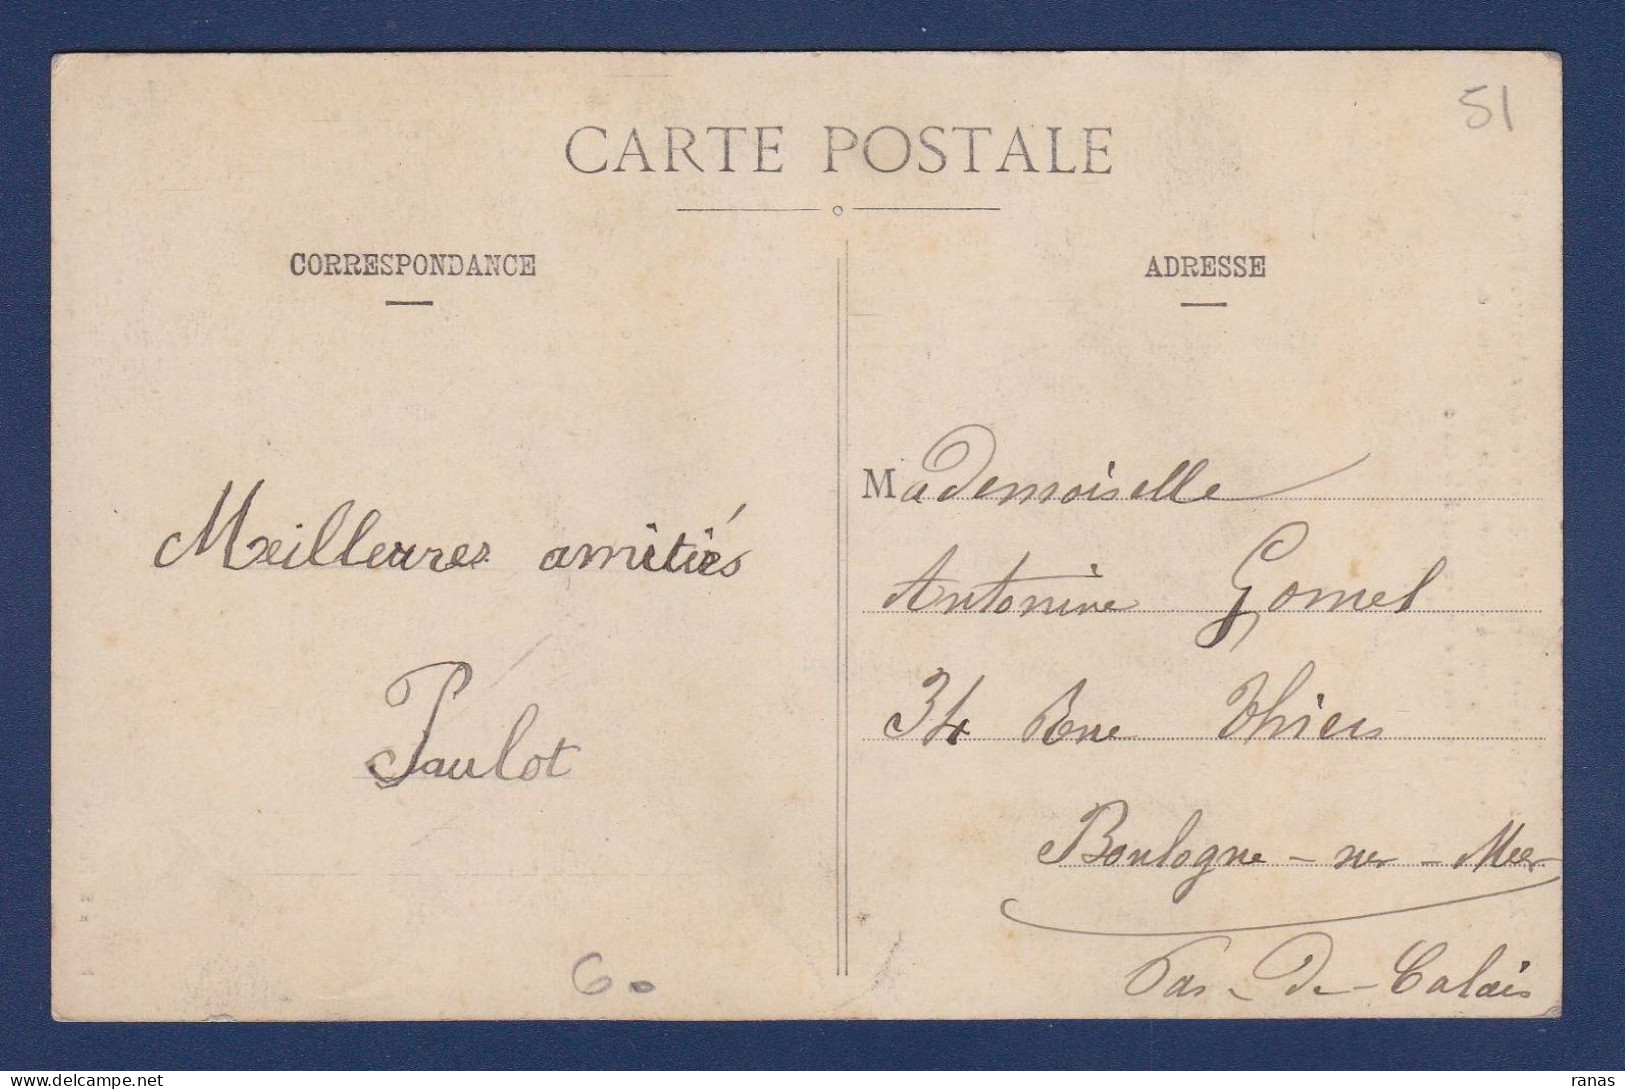 51
CARTE POSTALE
CORRESPONDANCE
ADRESSE
Meilleures amitiés
Paulot
Mademoiselle
Antonine Gomel
34 Rue Thiers
Boulogne-sur-Mer
Pas-De-Calais
60
delcampe.net
ranas